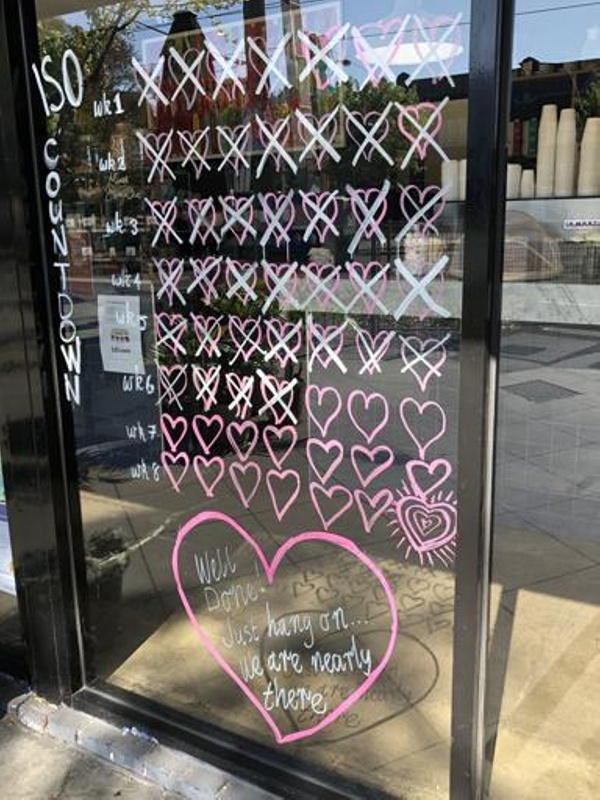 ISO
COUNTDOWN
wk 1
wk 2
wk 3
wk 4
wk 5
wk 6
wk 7
wk 8
Well
Done!
Just hang on...
we are nearly
there